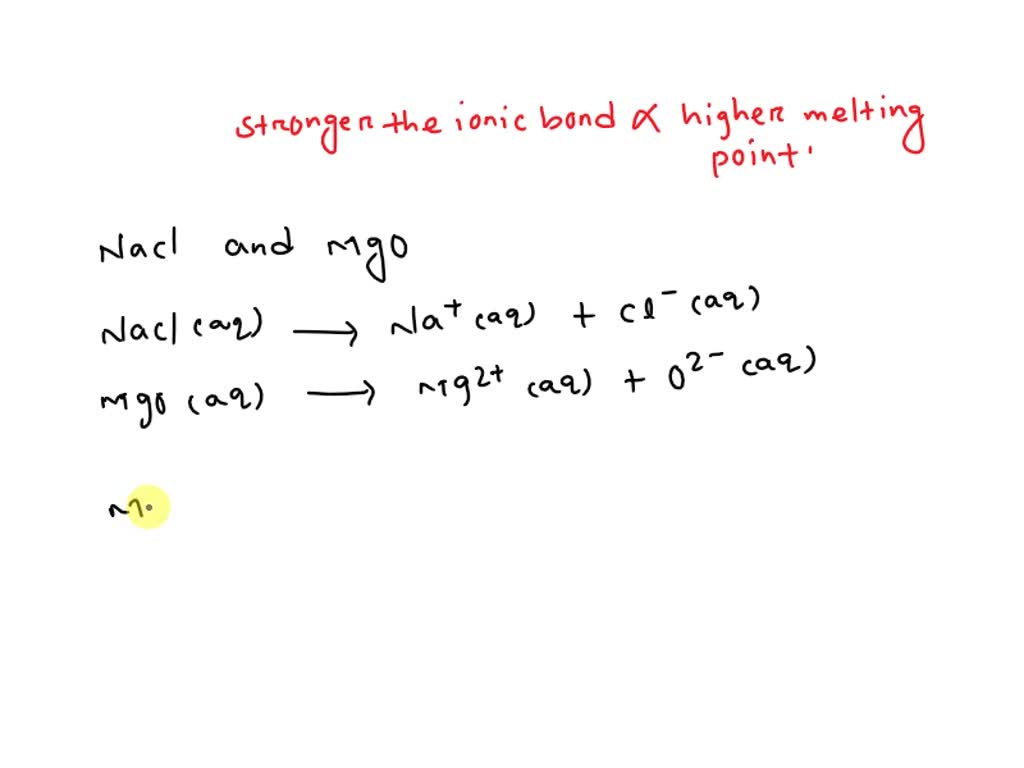 stronger the ionic bond ∝ higher melting
point.
Nacl and MgO
Nacl (aq) ⟶ Na⁺ (aq) + Cl⁻ (aq)
MgO (aq) ⟶ Mg²⁺ (aq) + O²⁻ (aq)